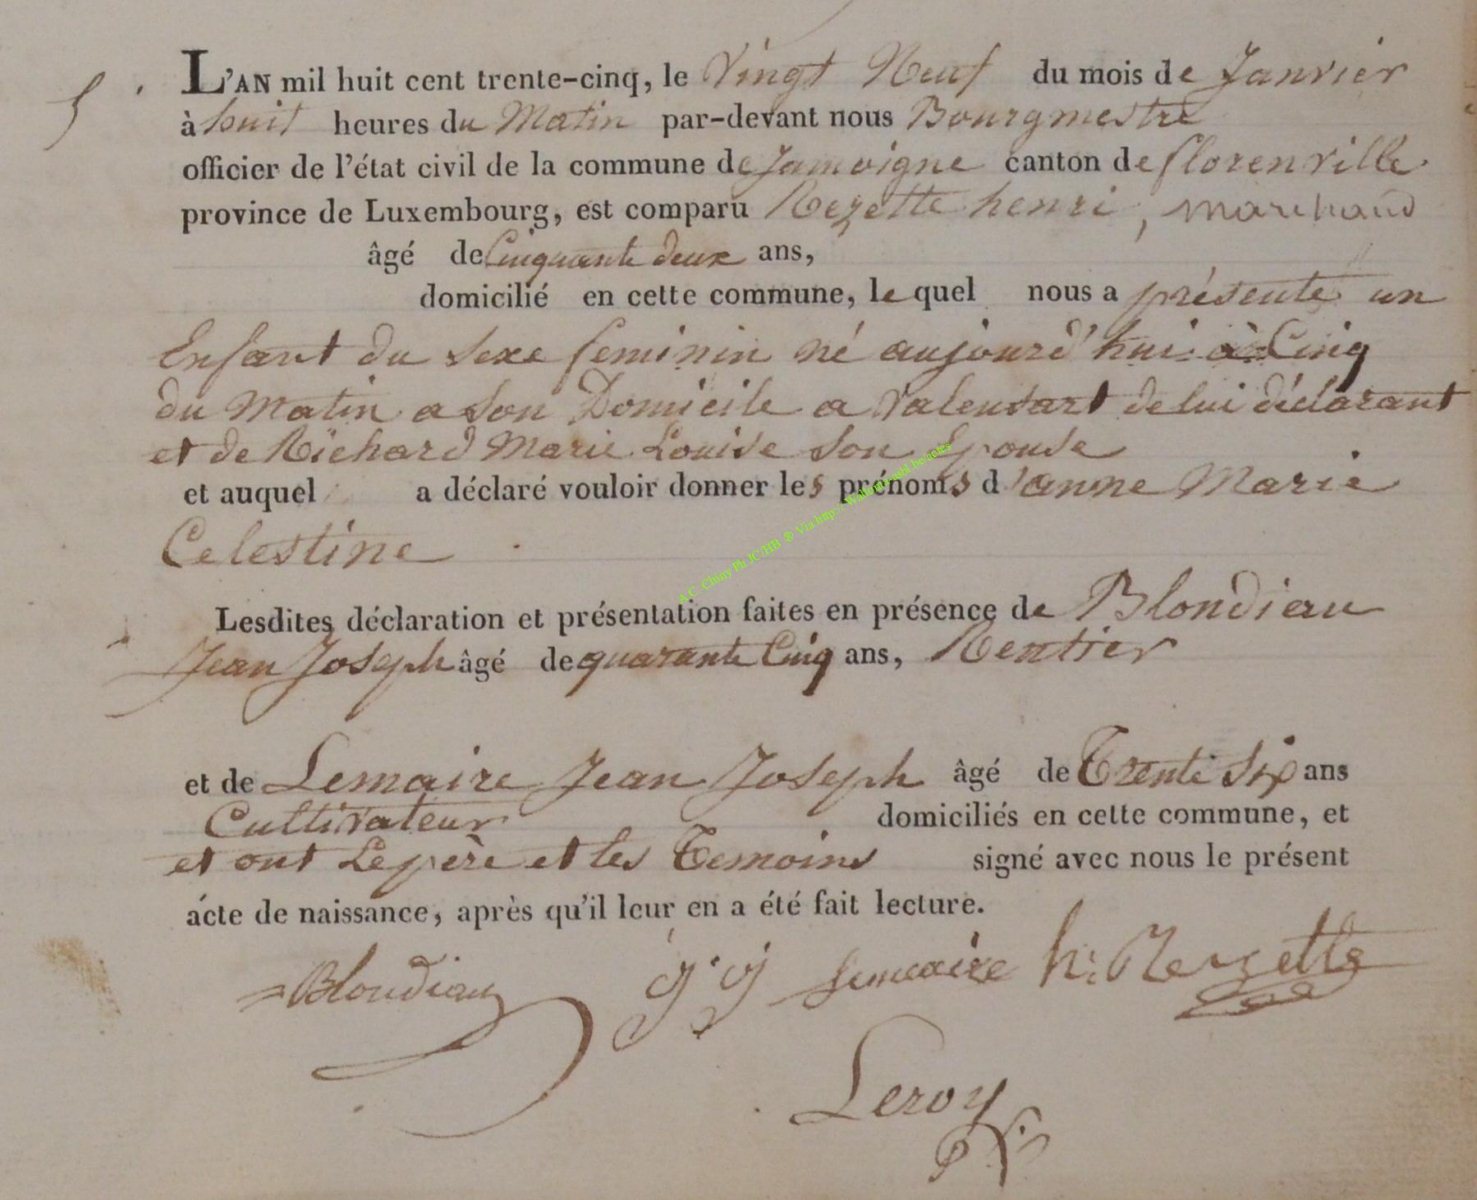 5.
L'AN mil huit cent trente-cinq, le Vingt Neuf du mois de Janvier
à huit heures du Matin par-devant nous Bourgmestre
officier de l'état civil de la commune de Jamoigne canton de florenville
province de Luxembourg, est comparu Rezette henri, marchand
âgé de Cinquante deux ans,
domicilié en cette commune, le quel nous a présenté un
Enfant du sexe feminin né aujourd'hui à Cinq
du Matin a son Domicile a Valensart de lui déclarant
et de Richard Marie Louise son Epouse
et auquel a déclaré vouloir donner les prénoms d'anne Marie
Celestine
Lesdites déclaration et présentation faites en présence de Blondiau
Jean Joseph âgé de quarante Cinq ans, Rentier
et de Lemaire Jean Joseph âgé de Trente Six ans
Cultivateur domiciliés en cette commune, et
et ont Le père et les Temoins signé avec nous le présent
acte de naissance, après qu'il leur en a été fait lecture.
Blondiau j j Lemaire h: Rezette
Leroy